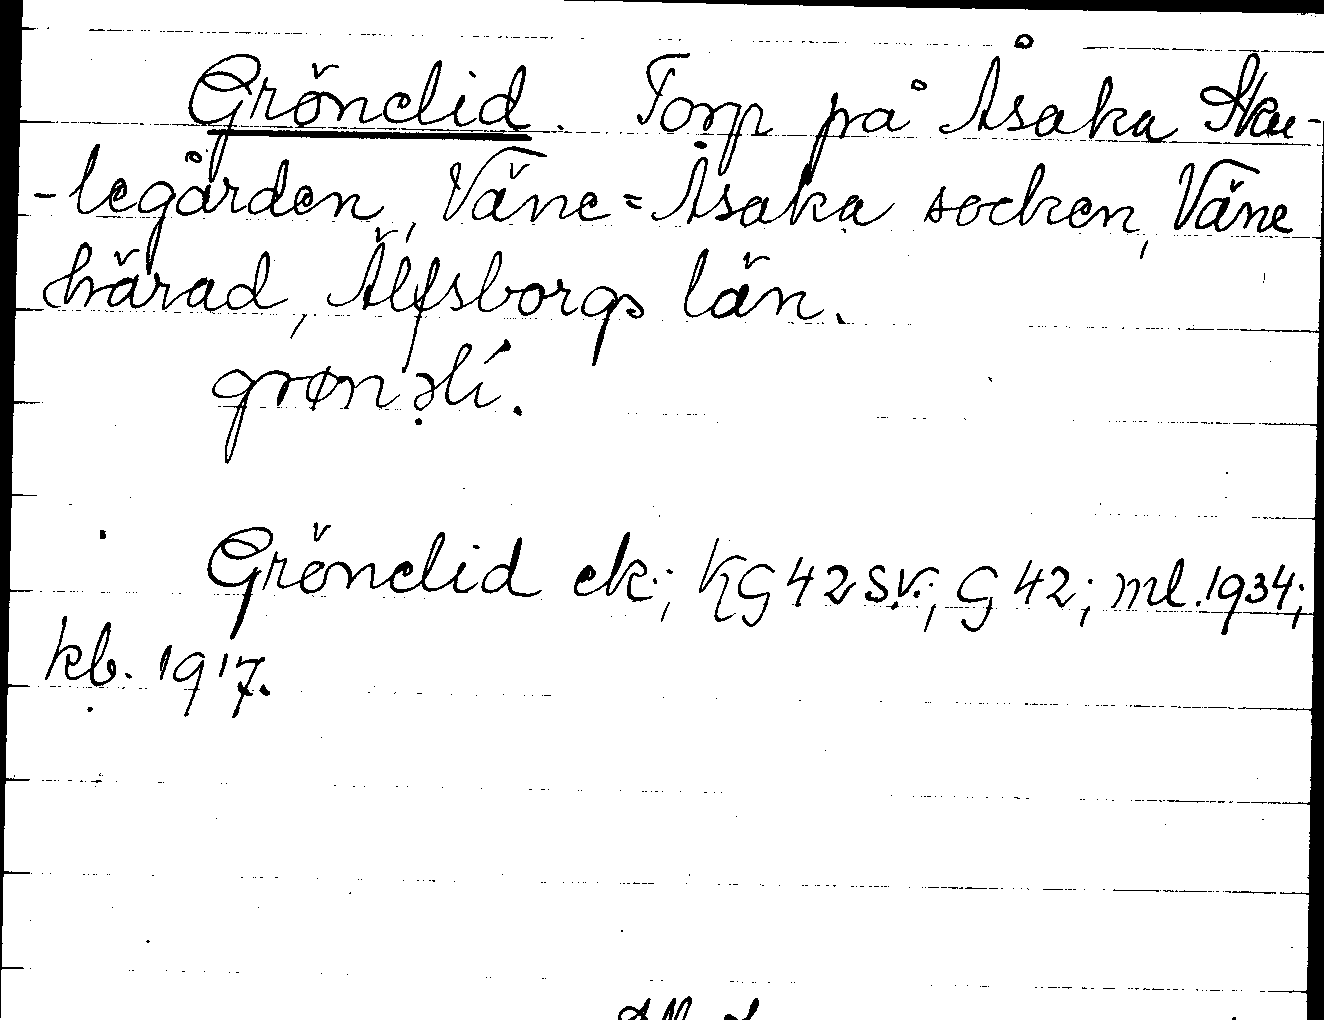 Grönelid. Torp på Åsaka Ska-
-legården, Väne=Åsaka socken, Väne
härad, Älfsborgs län.
grønəlí.
Grönelid ek.; KG 42 S.V.; G 42; ml. 1934;
kb. 1917.